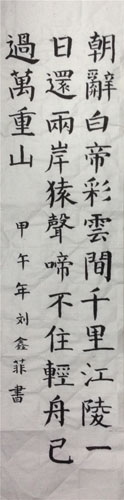 朝辭白帝彩雲間千里江陵一
日還兩岸猿聲啼不住輕舟已
過萬重山
甲午年刘鑫菲書